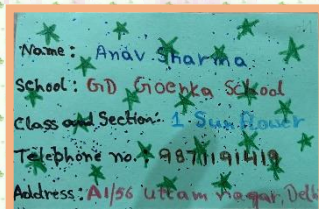 Name: Anav Sharma
School: GD Goenka School
Class and Section: 1 Sunflower
Telephone no.: 9871191419
Address: A1/56 Uttam nagar, Delhi